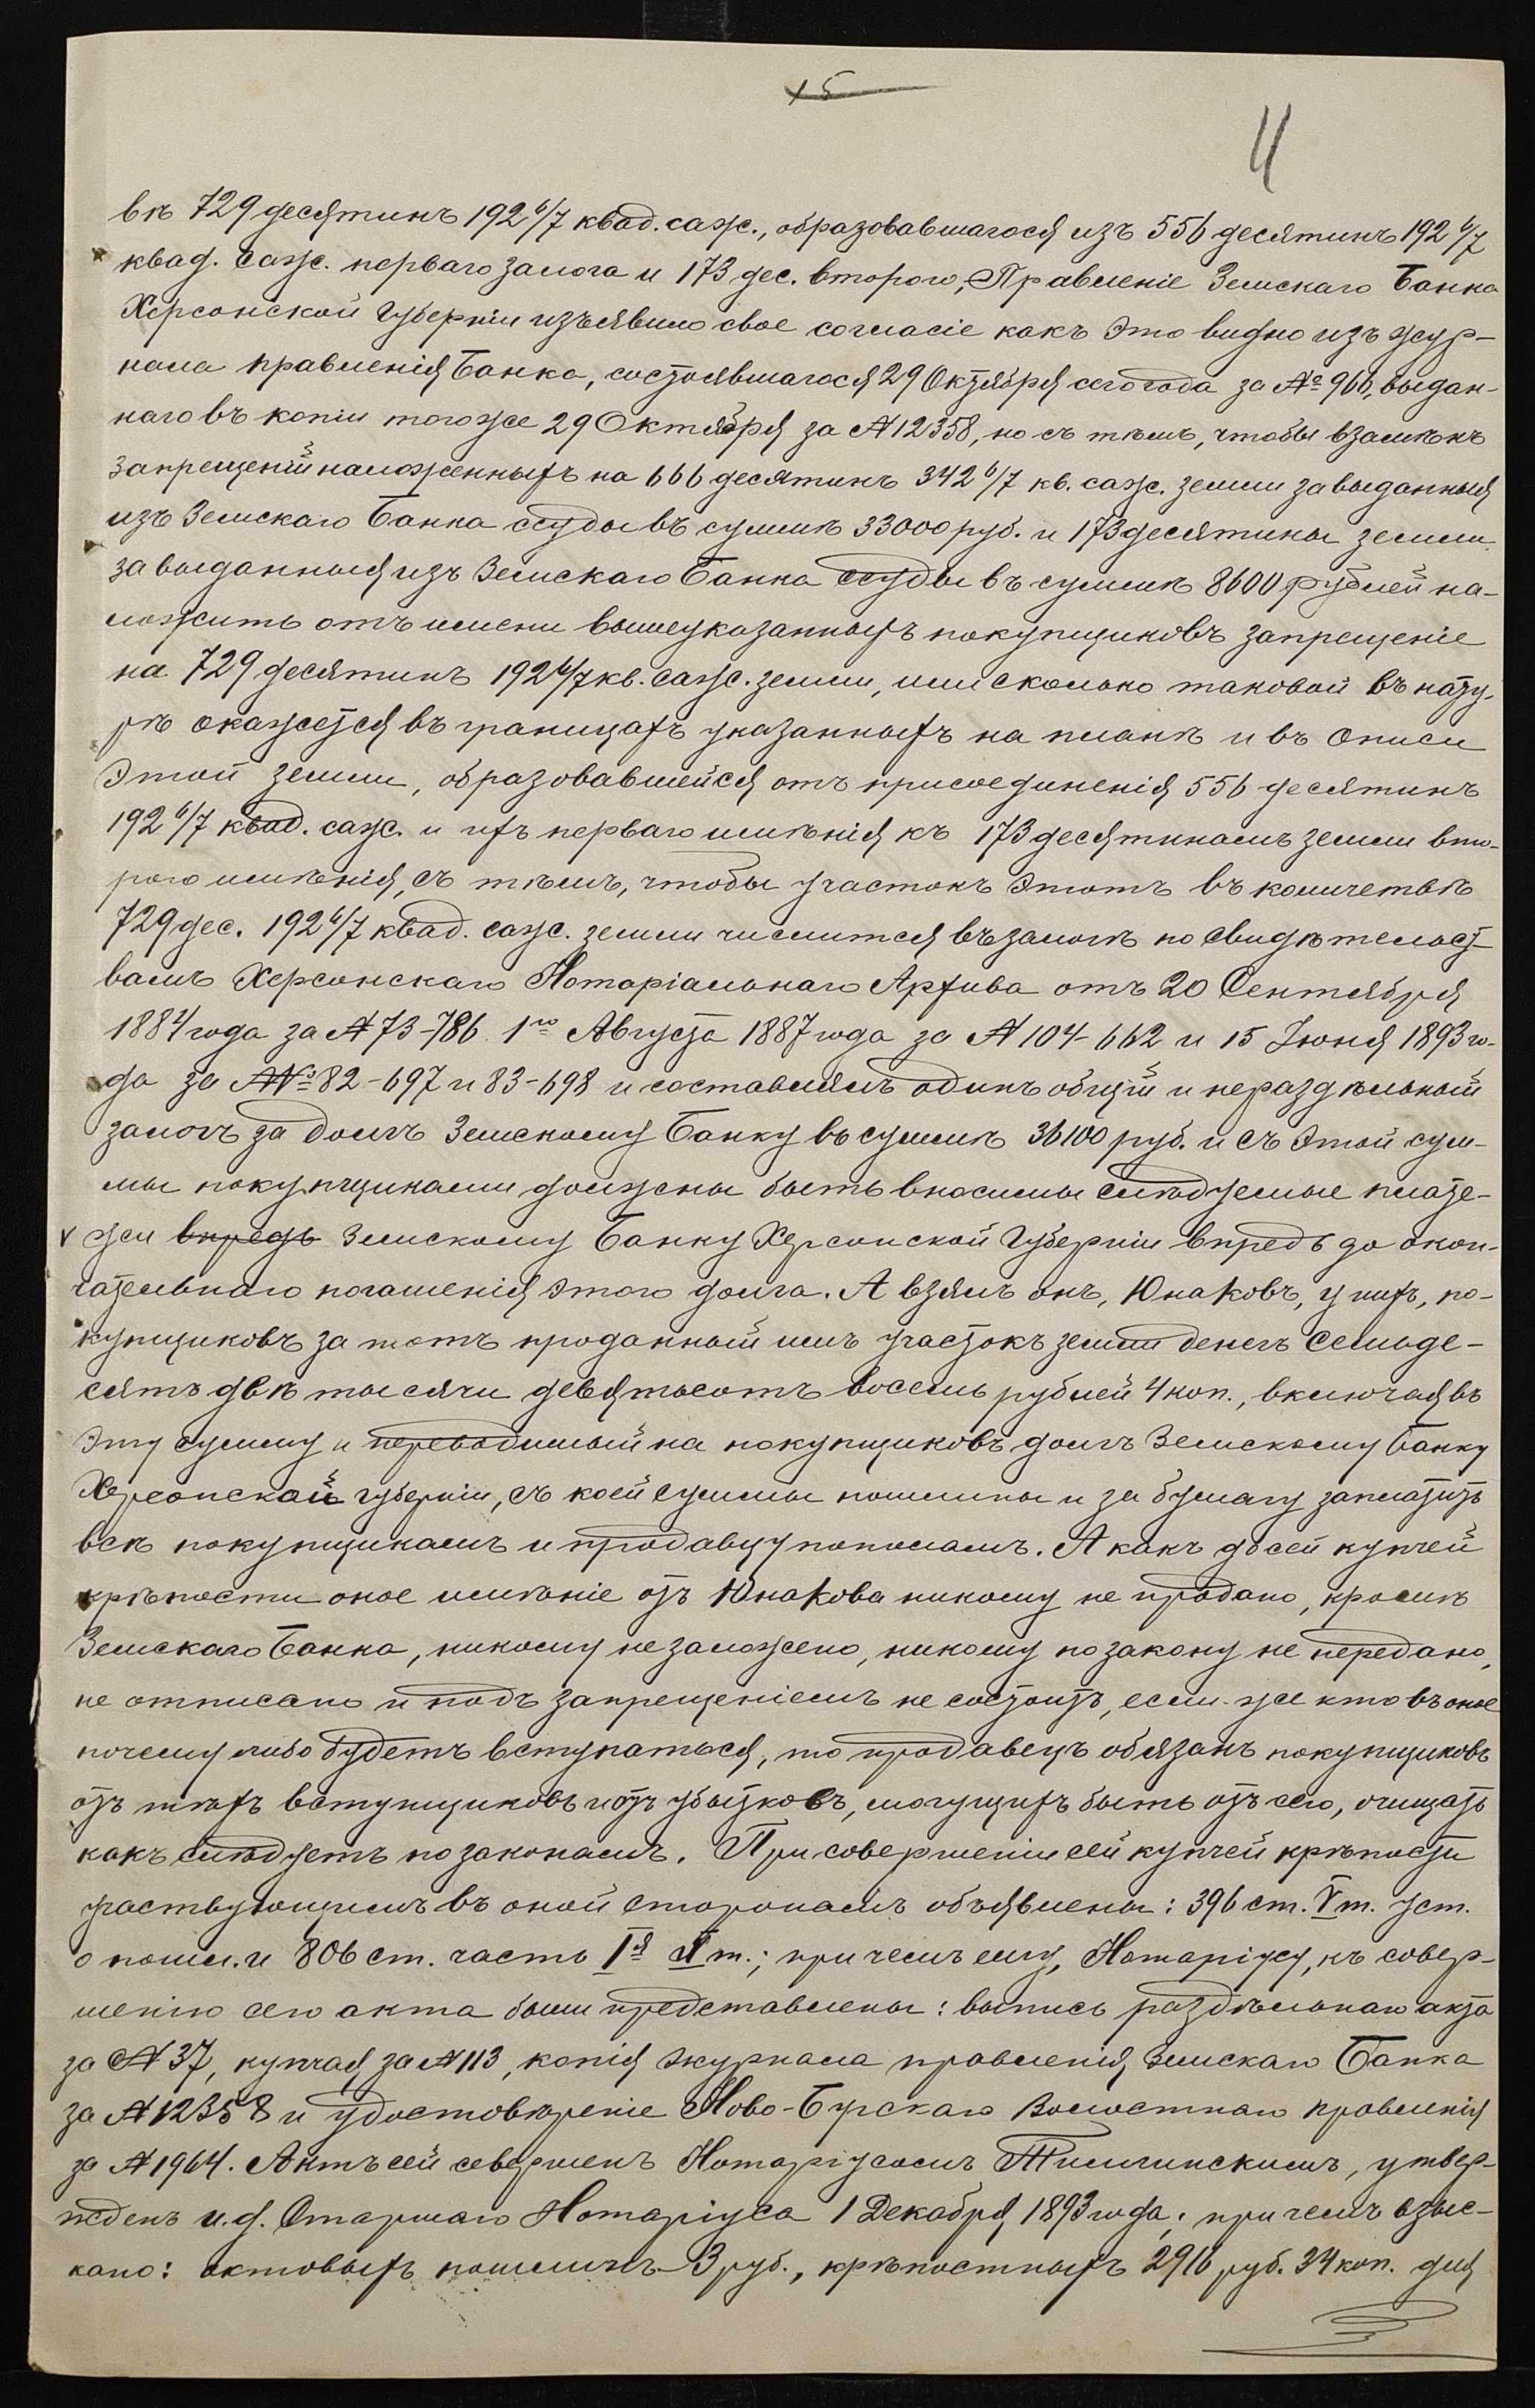 15
4
въ 729 десятинъ 192 6/7 квад. саж., образовавшагося изъ 556 десятинъ 192 6/7
квад. саж. перваго залога и 173 дес. второго, Правленіе Земскаго Банка
Херсонской Губерніи изъявило свое согласіе какъ это видно изъ жур-
нала правленія Банка, состоявшагося 29 Октября сего года за № 966, выдан-
наго въ копіи того же 29 Октября за № 12358, но съ тѣмъ, чтобы взамѣнъ
запрещеній наложенныхъ на 666 десятинъ 342 6/7 кв. саж. земли за выданныя
изъ Земскаго Банка ссуды въ суммѣ 33000 руб. и 173 десятины земли
за выданныя изъ Земскаго Банка ссуды въ суммѣ 8600 рублей на-
ложить отъ имени вышеуказанныхъ покупщиковъ запрещеніе
на 729 десятинъ 192 6/7 кв. саж. земли, или сколько таковой въ нату-
рѣ окажется въ границахъ указанныхъ на планѣ и въ описи
этой земли, образовавшейся отъ присоединенія 556 десятинъ
192 6/7 квад. саж. и ихъ перваго имѣнія къ 173 десятинамъ земли вто-
рого имѣнія, съ тѣмъ, чтобы участокъ этотъ въ количествѣ
729 дес. 192 6/7 квад. саж. земли числится въ залогѣ по свидѣтельст-
вамъ Херсонскаго Нотаріальнаго Архива отъ 20 Сентября
1884 года за № 73-786 1го Августа 1887 года за № 104-662 и 15 Іюня 1893 го-
да за №№ 82-697 и 83-698 и составлялъ одинъ общій и нераздѣльный
залогъ за долгъ Земскому Банку въ суммѣ 36100 руб. и съ этой сум-
мы покупщиками должны быть вносимы слѣдуемые плате-
v жи впредь Земскому Банку Херсонской Губерніи впредь до окон-
чательнаго погашенія этого долга. А взялъ онъ, Юнаковъ, у нихъ, по-
купщиковъ за тотъ проданный имъ участокъ земли денегъ семьде-
сятъ двѣ тысячи девятьсотъ восемь рублей 4 коп., включая въ
эту сумму и переводимый на покупщиковъ долгъ Земскому Банку
Херсонской губерніи, съ коей суммы пошлины и за бумагу заплатить
всѣ покупщикамъ и продавцу пополамъ. А какъ до сей купчей
крѣпости оное имѣніе отъ Юнакова никому не продано, кромѣ
Земскаго Банка, никому не заложено, никому по закону не передано,
не отписано и подъ запрещеніемъ не состоитъ, если же кто въ оное
почему либо будетъ вступаться, то продавецъ обязанъ покупщиковъ
отъ тѣхъ вступщиковъ и отъ убытковъ, могущихъ быть отъ сего, очищать
какъ слѣдуетъ по законамъ. При совершеніи сей купчей крѣпости
участвующимъ въ оной сторонамъ объявлены: 396 ст. V т. уст.
о пошл. и 806 ст. часть Iя X т.; при чемъ ему, Нотаріусу, къ совер-
шенію сего акта были представлены: выпись раздѣльнаго акта
за № 37, купчая за № 113, копія журнала правленія Земскаго Банка
за № 12358 и удостовѣреніе Ново-Бугскаго Волостнаго правленія
за № 1964. Актъ сей совершенъ Нотаріусомъ, утвер-
жденъ и.д. Старшаго Нотаріуса 1 Декабря 1893 года; при чемъ взыс-
кано: актовыхъ пошлинъ 3 руб., крѣпостныхъ 2916 руб. 34 коп. для